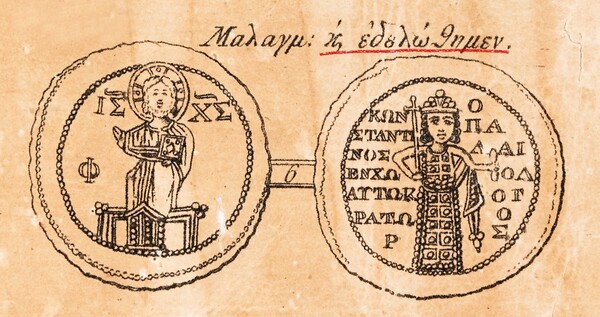 Μαλαγμ: κ̀ ἐδελώθημεν.
ΙΣ ΧΣ
Φ
6
ΚΩΝ
ΣΤΑΝΤΙ
ΝΟΣ
ΕΝΧΩ
ΑΥΤΟΚ
ΡΑΤΩ
Ρ
Ο
ΠΑ
ΛΑΙ
ΟΛ
ΟΓ
ΟΣ